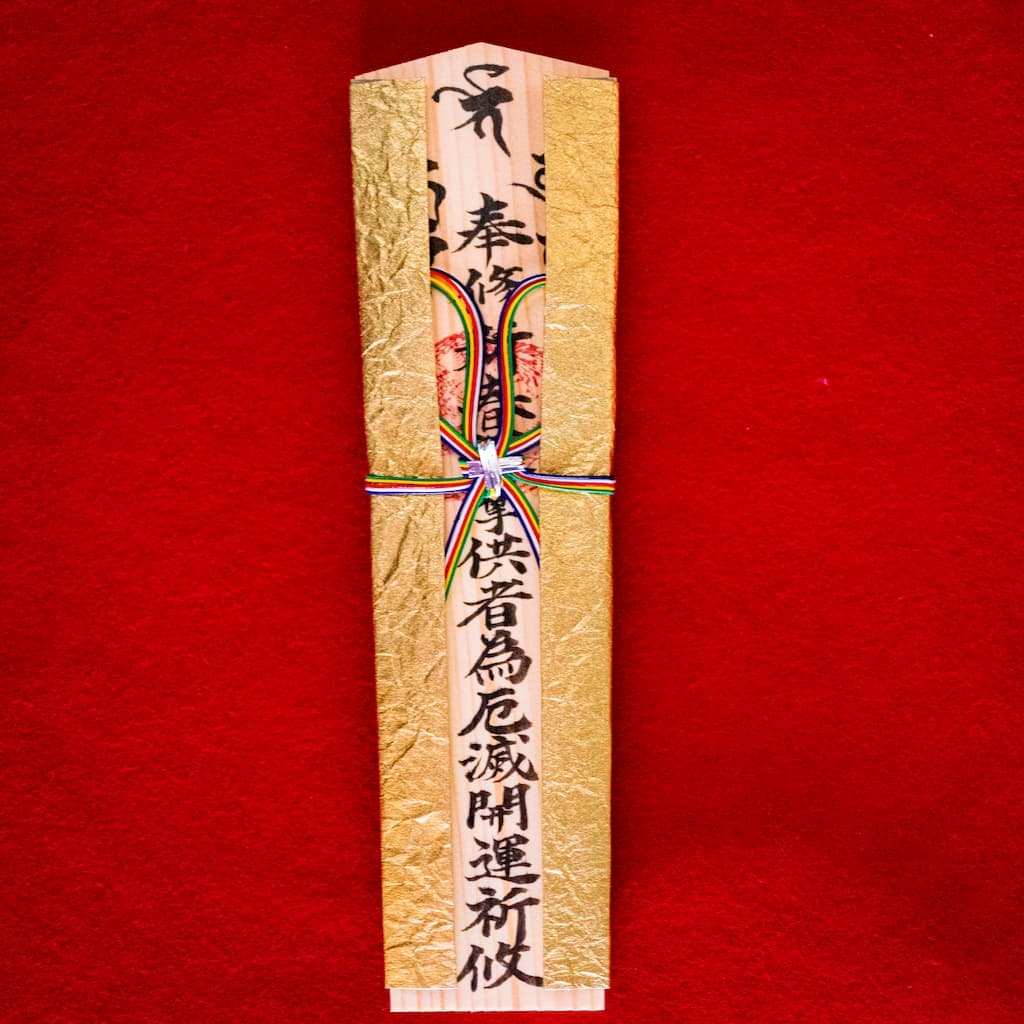 奉修供者為厄滅開運祈攸